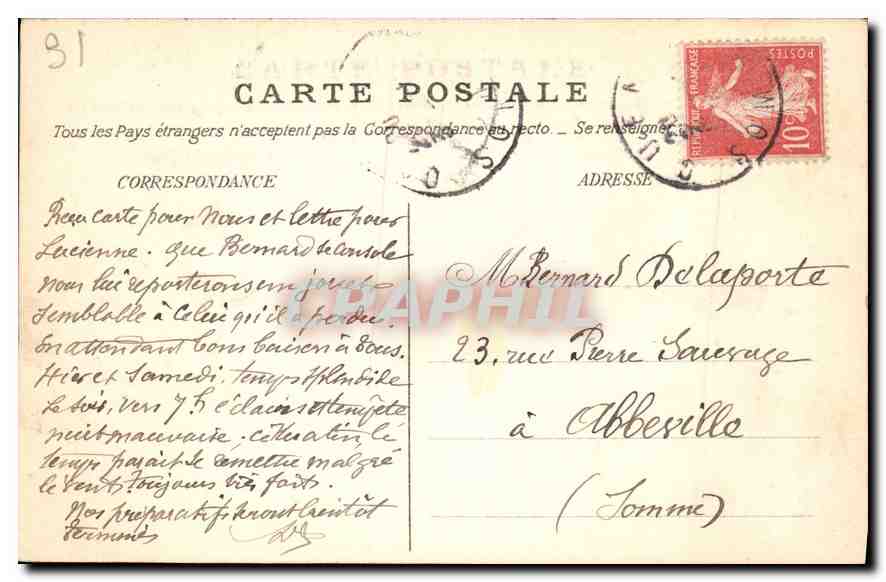 91
CARTE POSTALE
Tous les Pays étrangers n'acceptent pas la Correspondance au recto. _ Se renseigner
CORRESPONDANCE
ADRESSE
RÉPUBLIQUE FRANÇAISE
POSTES
10c
Reçu carte pour Nous et lettre pour
Lucienne. que Bernard se console
nous lui reporterons un jouet
semblable à celui qu'il a perdu.
En attendant bons baisers à tous.
Hier et Samedi. temps splendide
Le soir, vers 7h éclairs et tempête
nuit mauvaise. Ce matin, le
temps parait se remettre malgré
le vent toujours très fort.
Nos préparatifs seront bientôt
terminés
M. Bernard Delaporte
23, rue Pierre Sauvage
à Abbeville
(Somme)
CPAPHIL